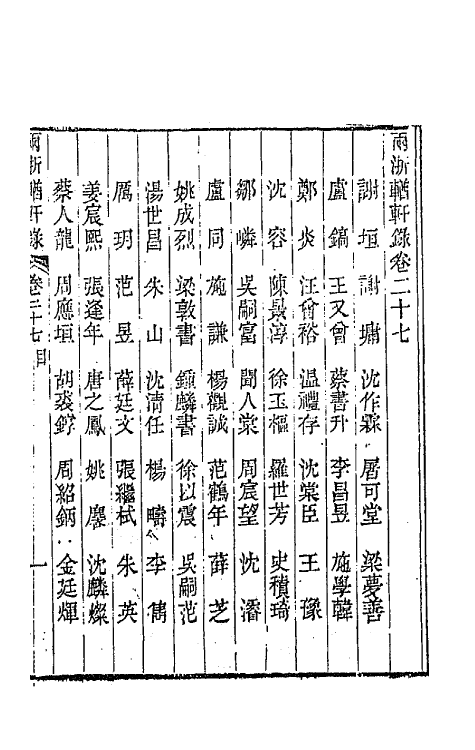 兩浙輶軒錄卷二十七
謝垣 謝墉 沈作霖 屠可堂 梁夢善
盧鎬 王又曾 蔡書升 李昌昱 施學韓
鄭炎 汪曾裕 温禮存 沈棠臣 王豫
沈容 陳景淳 徐玉樞 羅世芳 史積琦
鄒嶙 吳嗣富 聞人棠 周宸望 沈濬
盧同 施謙 楊觀誠 范鶴年 薛芝
姚成烈 梁敦書 鍾麟書 徐以震 吳嗣范
湯世昌 朱山 沈清任 楊疇 李儁
厲玥 范昱 薛廷文 張繼栻 朱英
姜宸熙 張逢年 唐之鳳 姚 沈麟燦
蔡人龍 周應垣 胡裘錞 周紹鈵 金廷煇
兩浙輶軒錄 卷二十七目 一